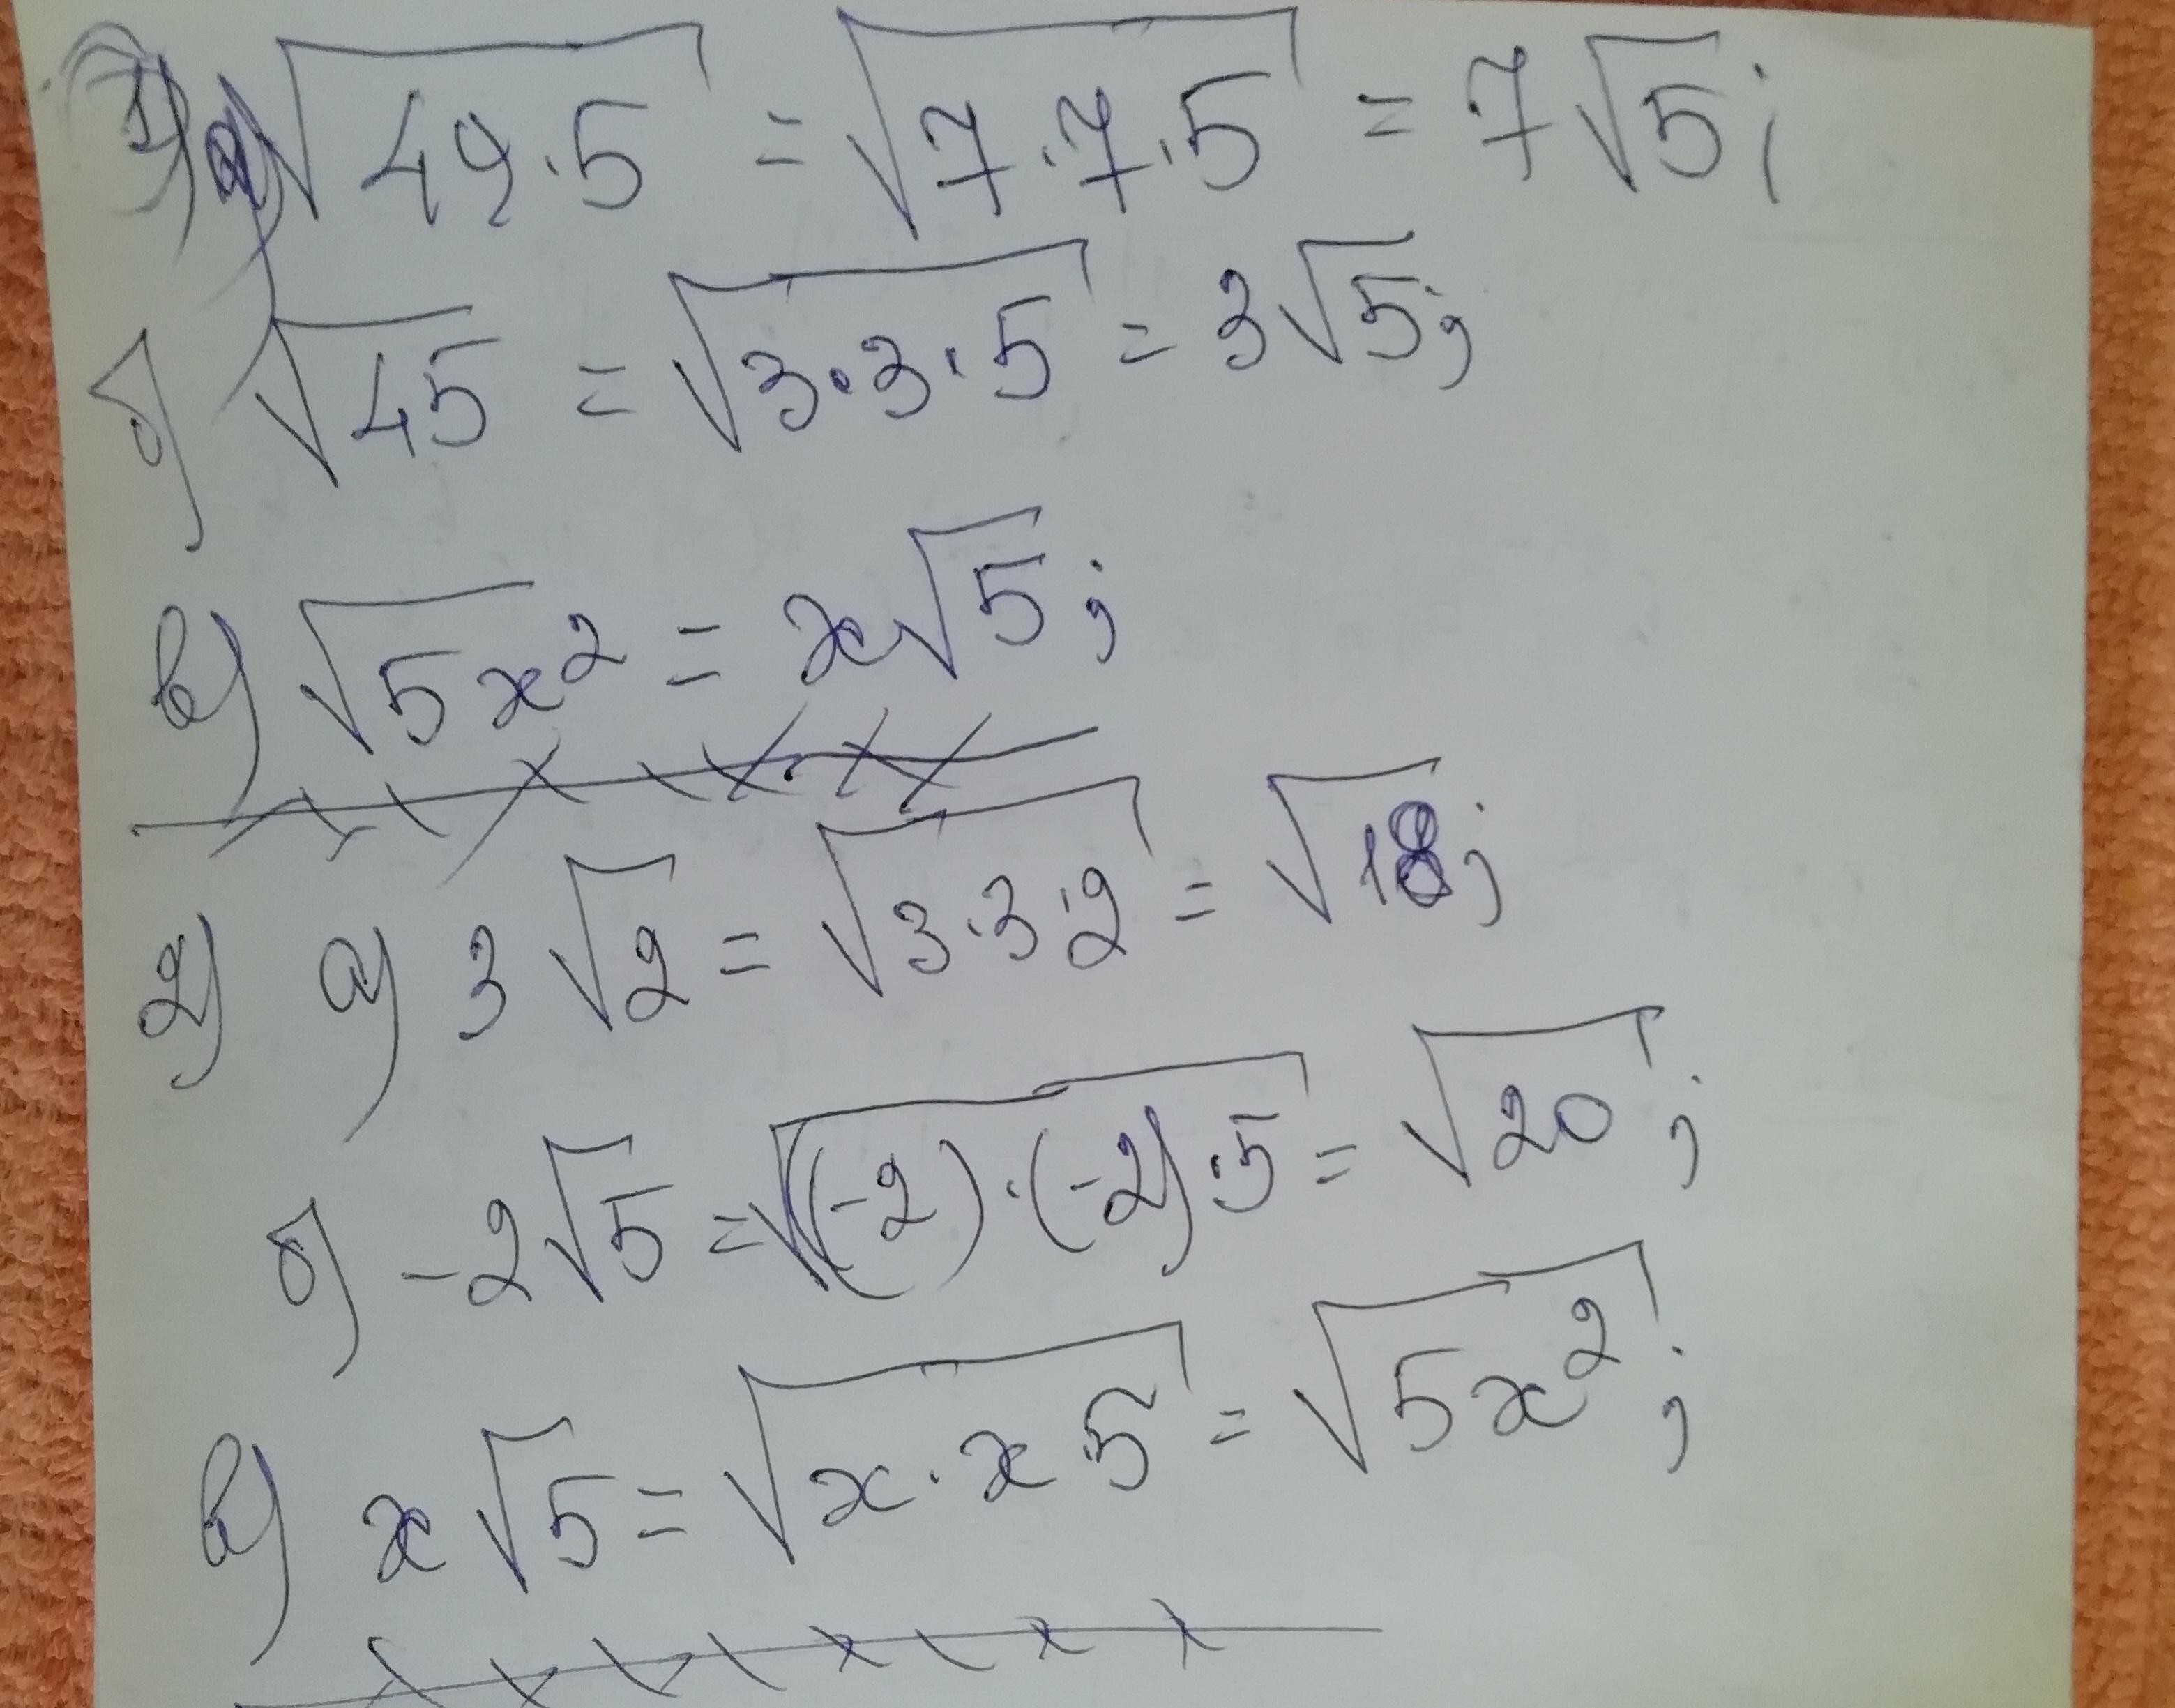 1) а) √49·5 = √7·7·5 = 7√5;
б) √45 = √3·3·5 = 3√5;
в) √5x² = x√5;
2) а) 3√2 = √3·3·2 = √18;
б) -2√5 = √(-2)·(-2)·5 = √20;
в) x√5 = √x·x·5 = √5x²;